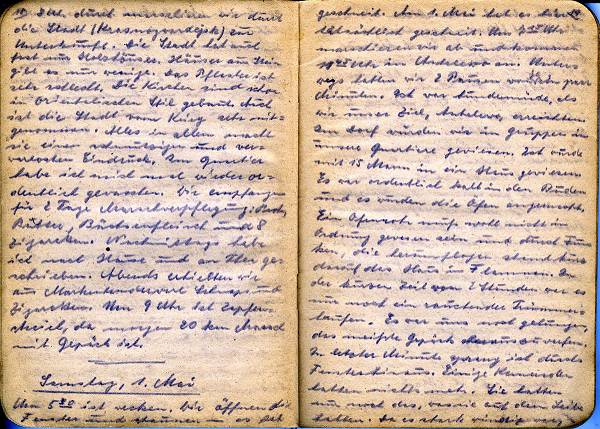 durch marschieren wir durch
die Stadt (Krasnogwardejsk) zur
Unterkunft. Die Stadt hat auch
fast nur Holzhäuser. Häuser aus Stein
gibt es nur wenige. Das Pflaster ist
sehr schlecht. Die Kirchen sind schon
in Orientalischen Stil gebaut. Auch
ist die Stadt vom Krieg sehr mit-
genommen. Alles in allem macht
sie einen schmutzigen und ver-
wahrlosten Eindruck. Im Quartier
habe ich mich mal wieder or-
dentlich gewaschen. Wir empfangen
für 2 Tage Marschverpflegung:
Butter, Büchsenfleisch und 8
Zigaretten. Nachmittags habe
ich nach Hause und an Ilse ge-
schrieben. Abends erhielten wir
am Marketenderware Schnaps und
Zigaretten. Um 9 Uhr ist Zapfen-
streich, da morgen 20 km Marsch
mit Gepäck ist.
Samstag, 1. Mai
Um 5³⁰ ist wecken. Wir öffnen die
Fenster und staunen – es hat
geschneit. Am 1. Mai hat es hier
tatsächlich geschneit. Um 7³⁰ Uhr
marschieren wir ab und kommen
Uhr in an. Unter-
wegs hatten wir 2 Pausen von je paar
Minuten. Ich war hundemüde, als
wir unser Ziel, erreichten.
Im Dorf wurden wir in Gruppen in
unsere Quartiere gewiesen. Ich wurde
mit 15 Mann in ein Haus gewiesen.
Es war ordentlich kalt in den Buden
und es wurden die Öfen angemacht.
Ein Ofenrohr muß wohl nicht in
Ordnung gewesen sein und durch Fun-
ken, die herumflogen stand kurz
darauf das Haus in Flammen. In
der kurzen Zeit von 2 Stunden war es
nur noch ein rauchender Trümmer-
haufen. Es war uns noch gelungen,
das meiste Gepäck heraus zu werfen.
In letzter Minute sprang ich durchs
Fenster hinaus. Einige Kameraden
hatten nichts mehr. Sie hatten
nur noch das, was sie auf dem Leibe
hatten. Da es stark windig war,